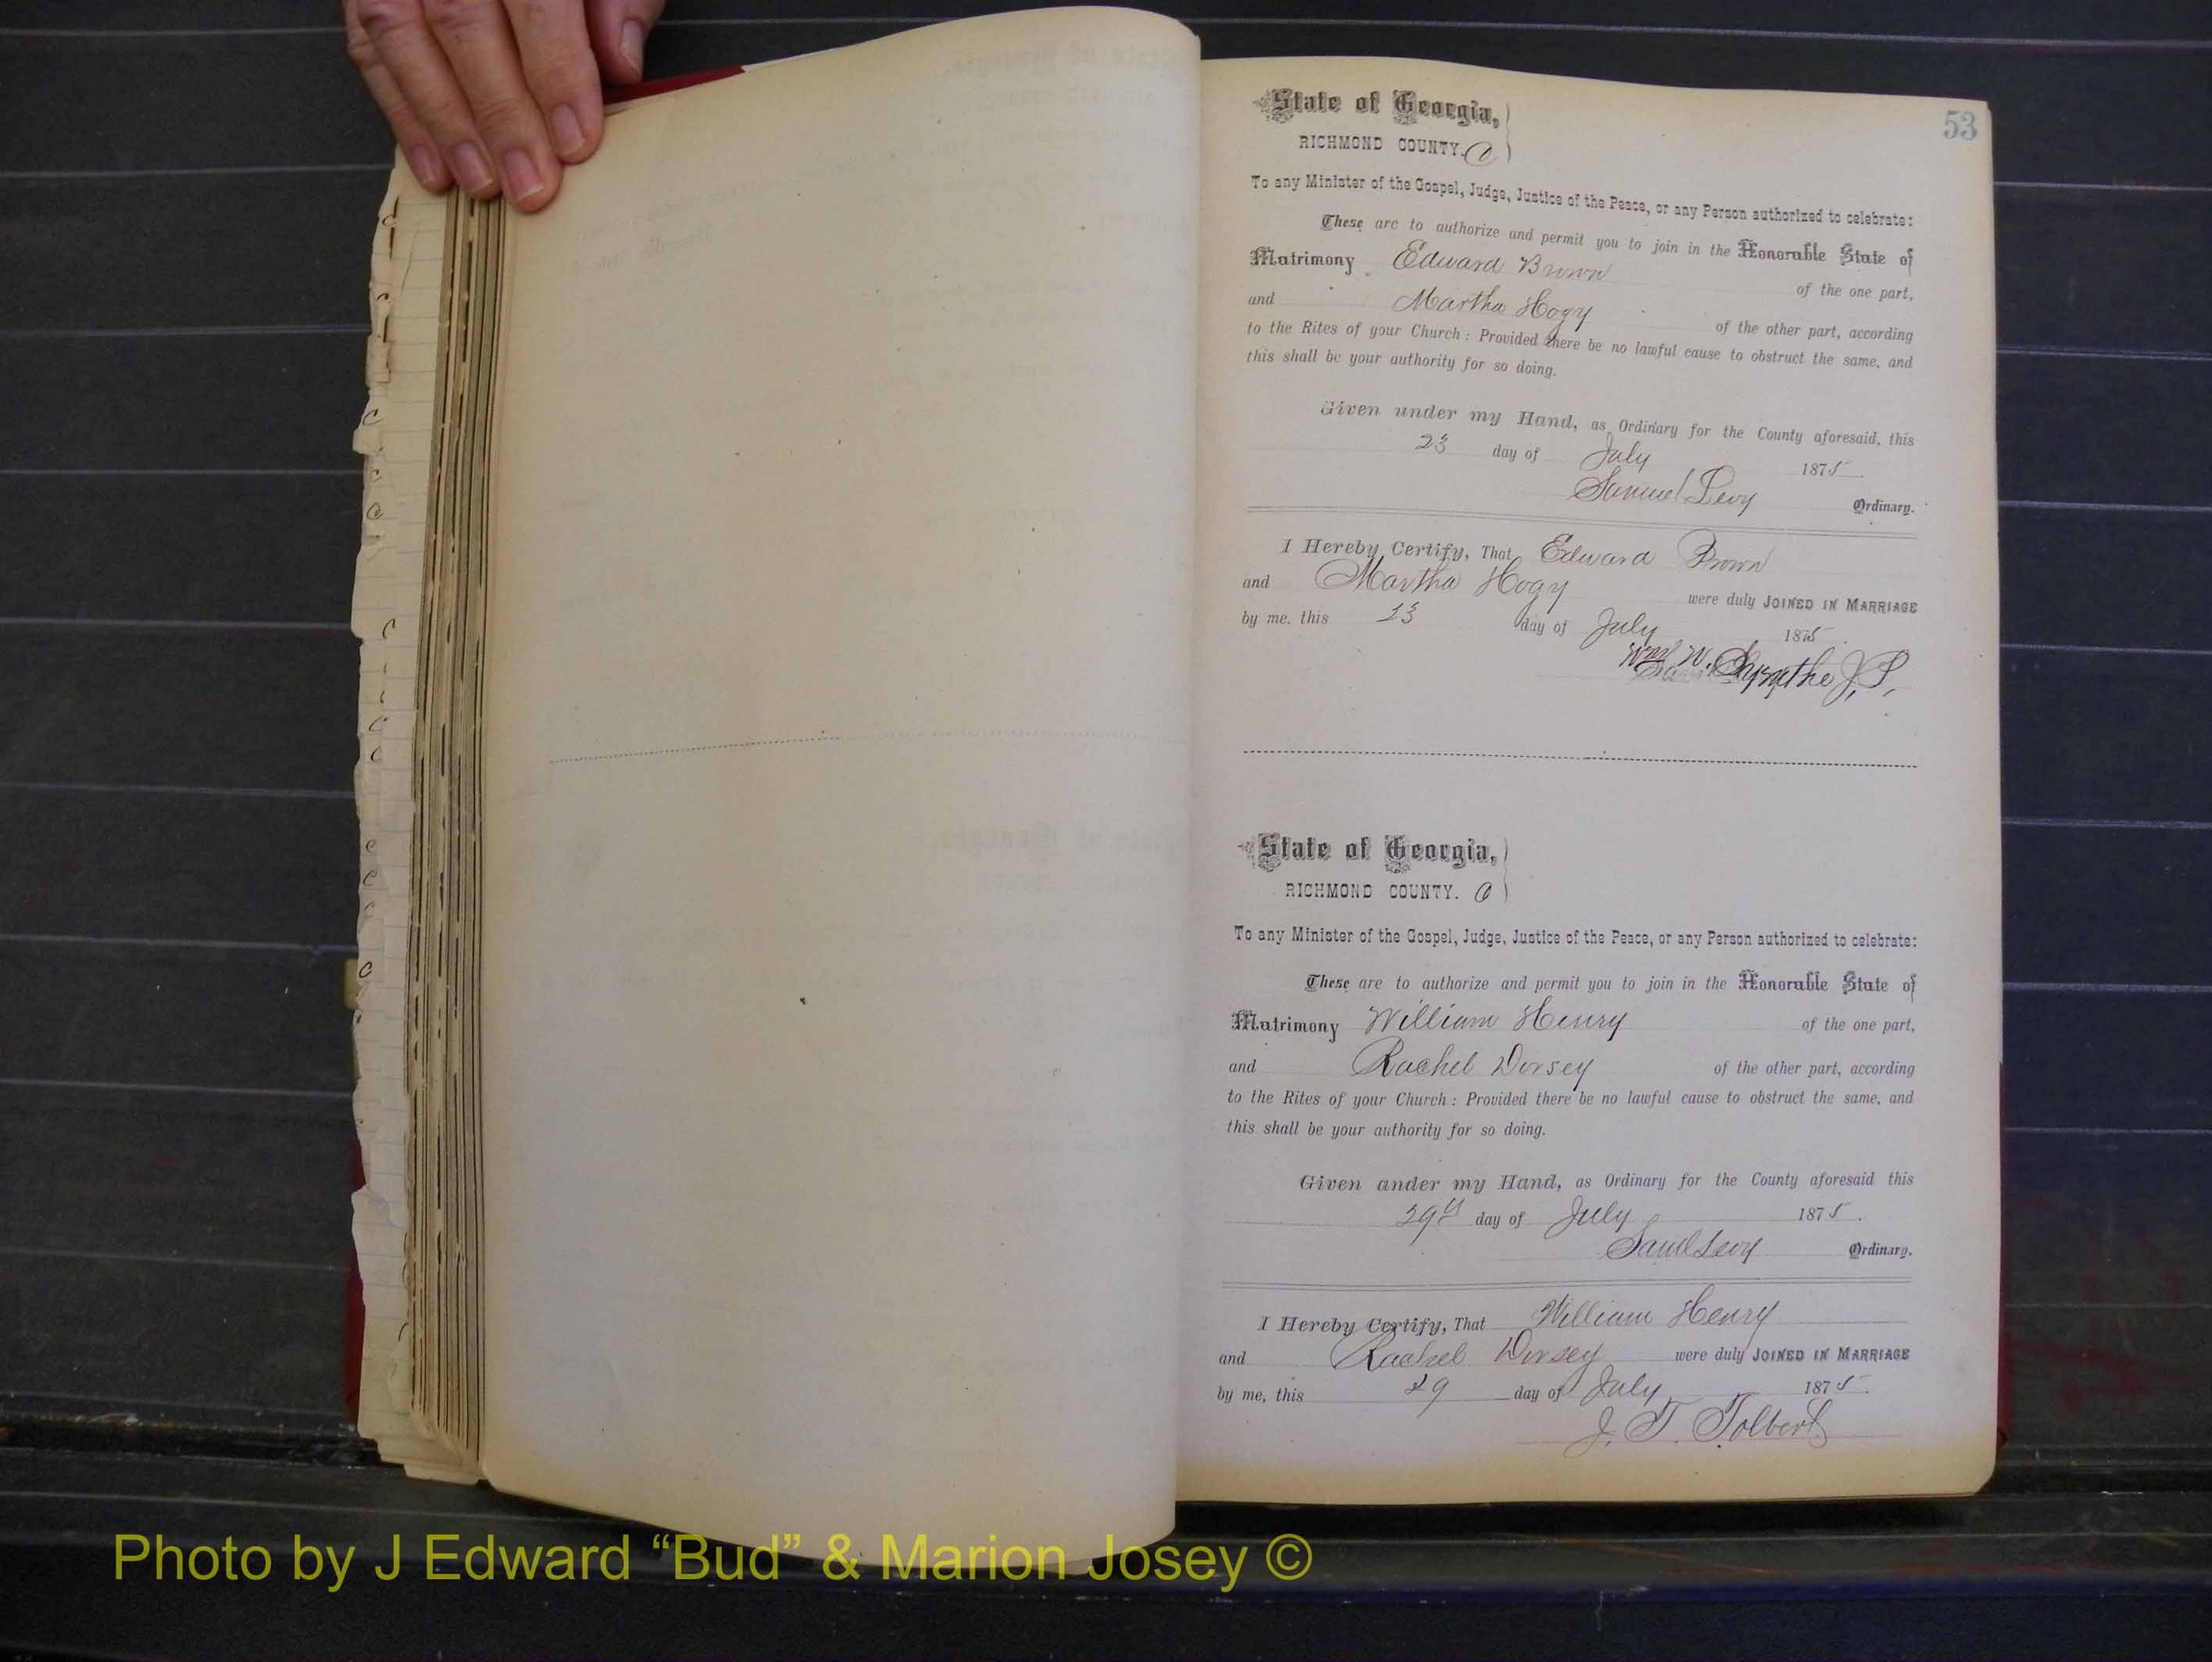 53
State of Georgia,
RICHMOND COUNTY. C
To any Minister of the Gospel, Judge, Justice of the Peace, or any Person authorized to celebrate:
These are to authorize and permit you to join in the Honorable State of
Matrimony Edward Brown of the one part,
and Martha Hogy of the other part, according
to the Rites of your Church: Provided there be no lawful cause to obstruct the same, and
this shall be your authority for so doing.
Given under my Hand, as Ordinary for the County aforesaid, this
23 day of July 1875.
Samuel Levy Ordinary.
I Hereby Certify, That Edward Brown
and Martha Hogy were duly JOINED IN MARRIAGE
by me, this 23 day of July 1875.
Wm W. Smythe J.P.
State of Georgia,
RICHMOND COUNTY. C
To any Minister of the Gospel, Judge, Justice of the Peace, or any Person authorized to celebrate:
These are to authorize and permit you to join in the Honorable State of
Matrimony William Henry of the one part,
and Rachel Dorsey of the other part, according
to the Rites of your Church: Provided there be no lawful cause to obstruct the same, and
this shall be your authority for so doing.
Given under my Hand, as Ordinary for the County aforesaid this
29th day of July 1875.
Saml Levy Ordinary.
I Hereby Certify, That William Henry
and Rachel Dorsey were duly JOINED IN MARRIAGE
by me, this 29 day of July 1875.
J. T. Tolbert
Photo by J Edward “Bud” & Marion Josey ©